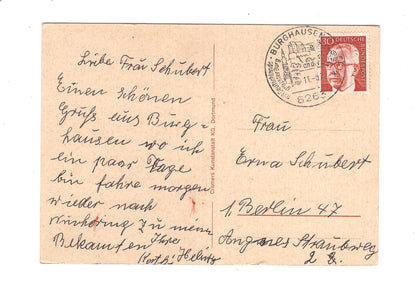 Liebe Frau Schubert
Einen schönen
Gruß aus Burg-
hausen wo ich
ein paar Tage
bin fahre morgen
wieder nach
zu meine
Bekannten Ihre
Cramers Kunstanstalt KG, Dortmund
BURGHAUSEN
8263
30 DEUTSCHE
Frau
Erna Schubert
1 Berlin 47
Straubweg